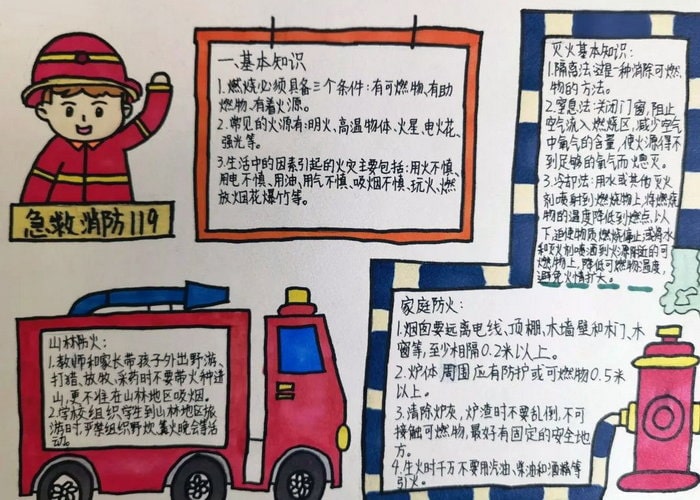 急救消防119
一、基本知识
1.燃烧必须具备三个条件:有可燃物、有助
燃物、有着火源。
2.常见的火源有:明火、高温物体、火星、电火花、
强光等。
3.生活中的因素引起的火灾主要包括:用火不慎、
用电不慎、用油、用气不慎、吸烟不慎、玩火、燃
放烟花爆竹等。
灭火基本知识:
1.隔离法:这是一种消除可燃
物的方法。
2.窒息法:关闭门窗,阻止
空气流入燃烧区,减少空气
中氧气的含量,使火源得不
到足够的氧气而熄灭。
3.冷却法:用水或其他灭火
剂喷射到燃烧物上,将燃烧
物的温度降低到燃点以
下,迫使物质燃烧停止;或将水
和灭火剂喷洒到火源附近的可
燃物上,降低可燃物温度,
避免火情扩大。
山林防火:
1.教师和家长带孩子外出野游、
打猎、放牧、采药时不要带火种进
山,更不准在山林地区吸烟。
2.学校组织学生到山林地区旅
游时,严禁组织野炊、篝火晚会等活
动。
家庭防火:
1.烟囱要远离电线、顶棚、木墙壁和木门、木
窗等,至少相隔0.2米以上。
2.炉体周围应有防护或可燃物0.5米
以上。
3.清除炉灰、炉渣时不要乱倒,不可
接触可燃物,最好有固定的安全地
方。
4.生火时千万不要用汽油、柴油和酒精等
引火。